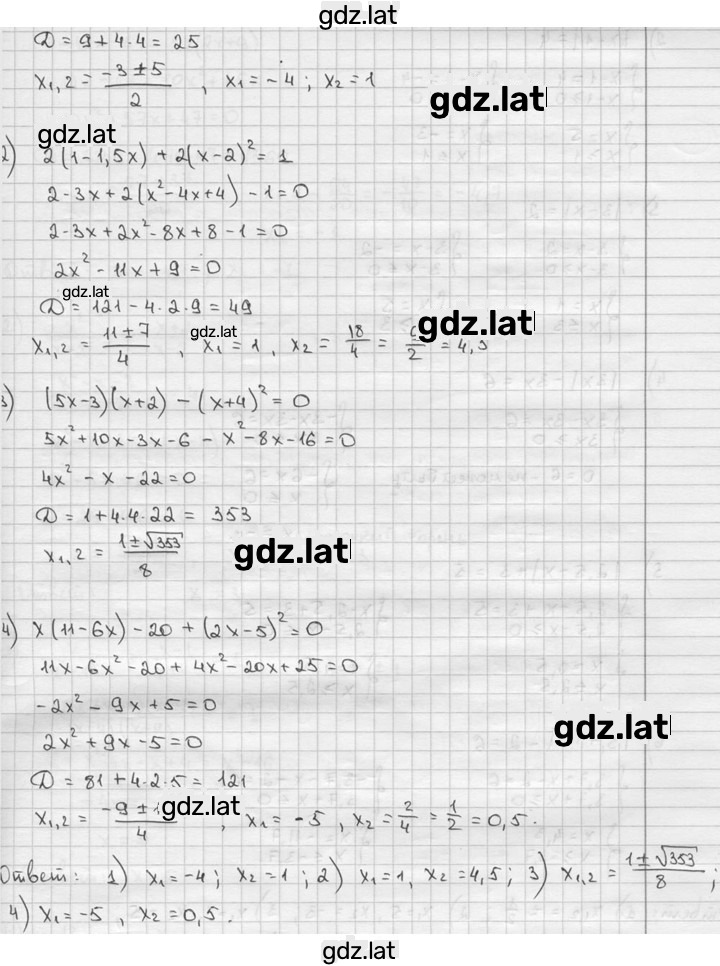 gdz.lat
D = 9 + 4·4 = 25
x₁,₂ = (-3 ± 5)/2 , x₁ = -4 ; x₂ = 1
gdz.lat
gdz.lat
2) 2(1-1,5x) + 2(x-2)² = 1
2-3x+2(x²-4x+4) -1=0
2-3x+2x²-8x+8-1=0
2x² - 11x + 9 = 0
gdz.lat
D = 121 - 4·2·9 = 49
gdz.lat
gdz.lat
x₁,₂ = (11±7)/4 , x₁ = 1 , x₂ = 18/4 = /2 = 4,5
3) (5x-3)(x+2) - (x+4)² = 0
5x²+10x-3x-6 - x²-8x-16=0
4x² - x - 22 = 0
D = 1+4·4·22 = 353
x₁,₂ = (1±√353)/8
gdz.lat
4) x(11-6x) - 20 + (2x-5)² = 0
11x-6x²-20+4x²-20x+25=0
-2x² - 9x + 5 = 0
gdz.lat
2x² + 9x - 5 = 0
D = 81 + 4·2·5 = 121
gdz.lat
x₁,₂ = (-9 ± )/4 , x₁ = -5 , x₂ = 2/4 = 1/2 = 0,5.
Ответ: 1) x₁=-4; x₂=1; 2) x₁=1, x₂=4,5; 3) x₁,₂ = (1±√353)/8 ;
4) x₁=-5 , x₂=0,5.
gdz.lat